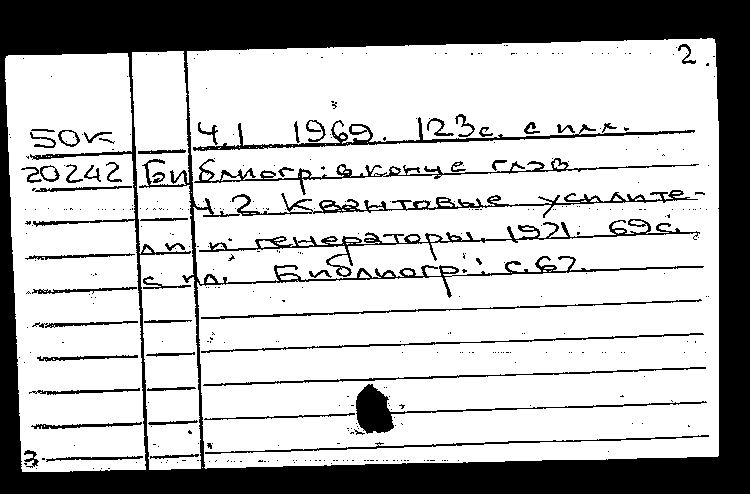 2.
50к Ч.1 1969. 123с. с илл.
20242 Библиогр: в конце глав.
Ч.2. Квантовые усилите-
ли и генераторы. 1971. 69с.
с ил. Библиогр.: с.67.
3